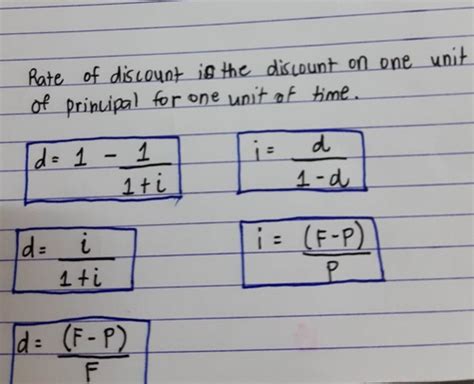 Rate of discount is the discount on one unit
of principal for one unit of time.
d = 1 - 1/(1+i)
i = d/(1-d)
d = i/(1+i)
i = (F-P)/P
d = (F-P)/F